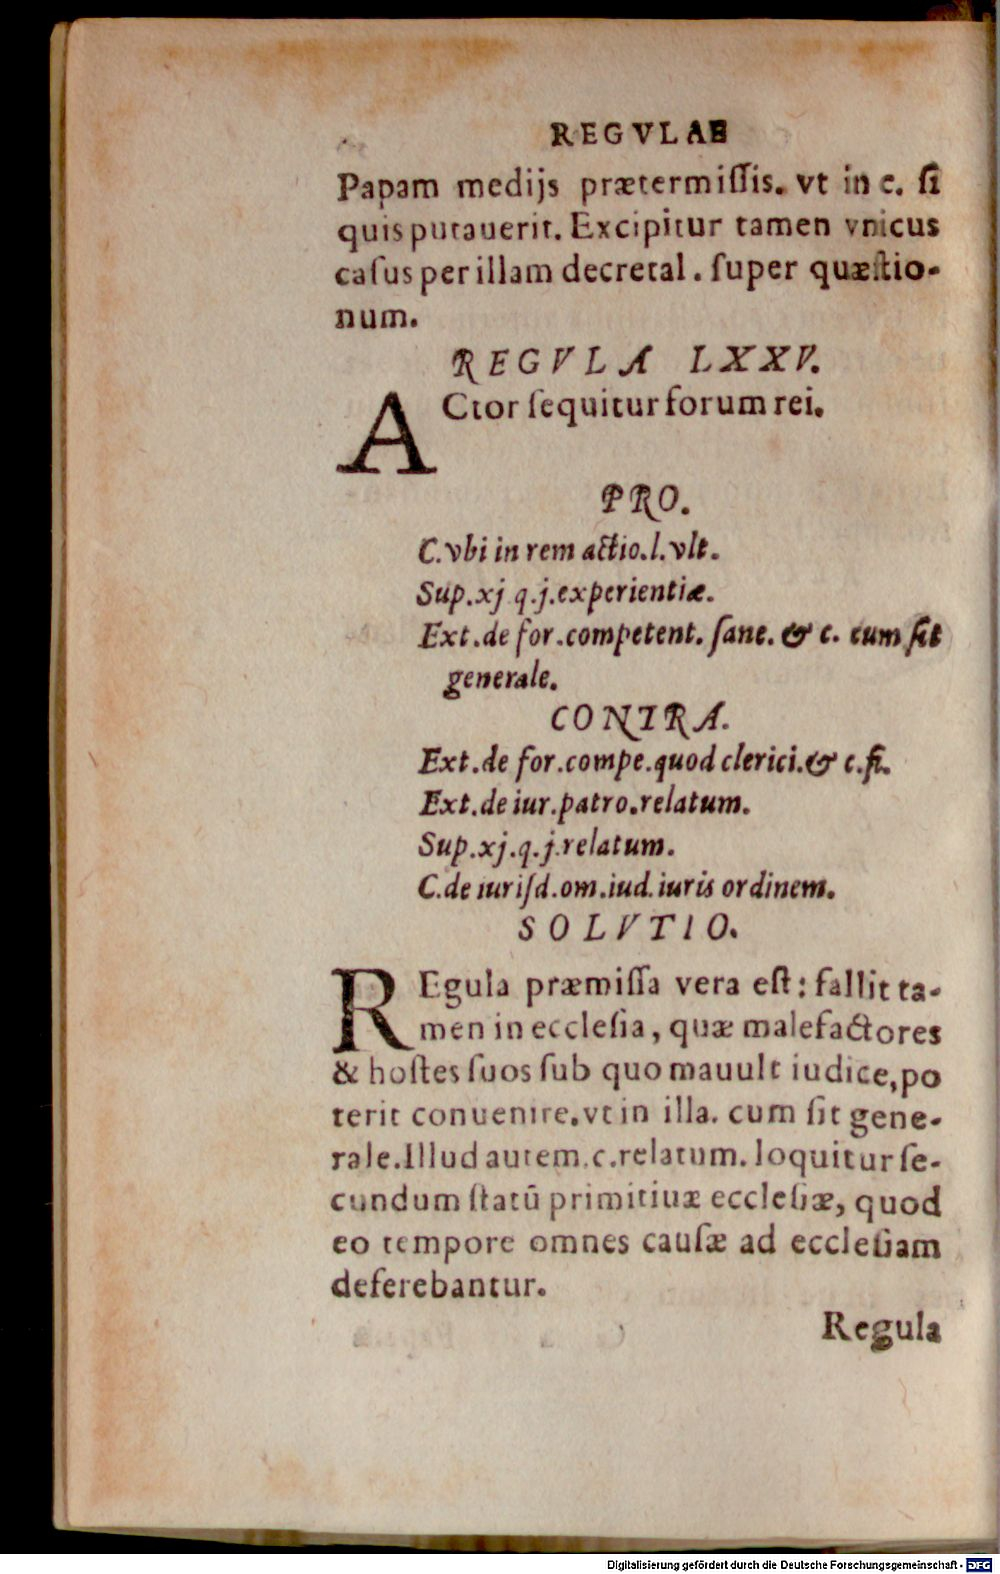 REGVLAE
Papam medijs prætermiſſis. vt in c. ſi
quis putauerit. Excipitur tamen vnicus
caſus per illam decretal. ſuper quæſtio-
num.
REGVLA LXXV.
ACtor ſequitur forum rei.
PRO.
C. vbi in rem actio. l. vlt.
Sup. xj q. j. experientiæ.
Ext. de for. competent. ſane. & c. cum ſit
generale.
CONTRA.
Ext. de for. compe. quod clerici. & c. fi.
Ext. de iur. patro. relatum.
Sup. xj. q. j. relatum.
C. de iuriſd. om. iud. iuris ordinem.
SOLVTIO.
REgula præmiſſa vera eſt: fallit ta-
men in eccleſia, quæ malefactores
& hoſtes ſuos ſub quo mauult iudice, po
terit conuenire. vt in illa. cum ſit gene-
rale. Illud autem. c. relatum. loquitur ſe-
cundum ſtatū primitiuæ eccleſiæ, quod
eo tempore omnes cauſæ ad eccleſiam
deferebantur.
Regula
Digitalisierung gefördert durch die Deutsche Forschungsgemeinschaft - DFG